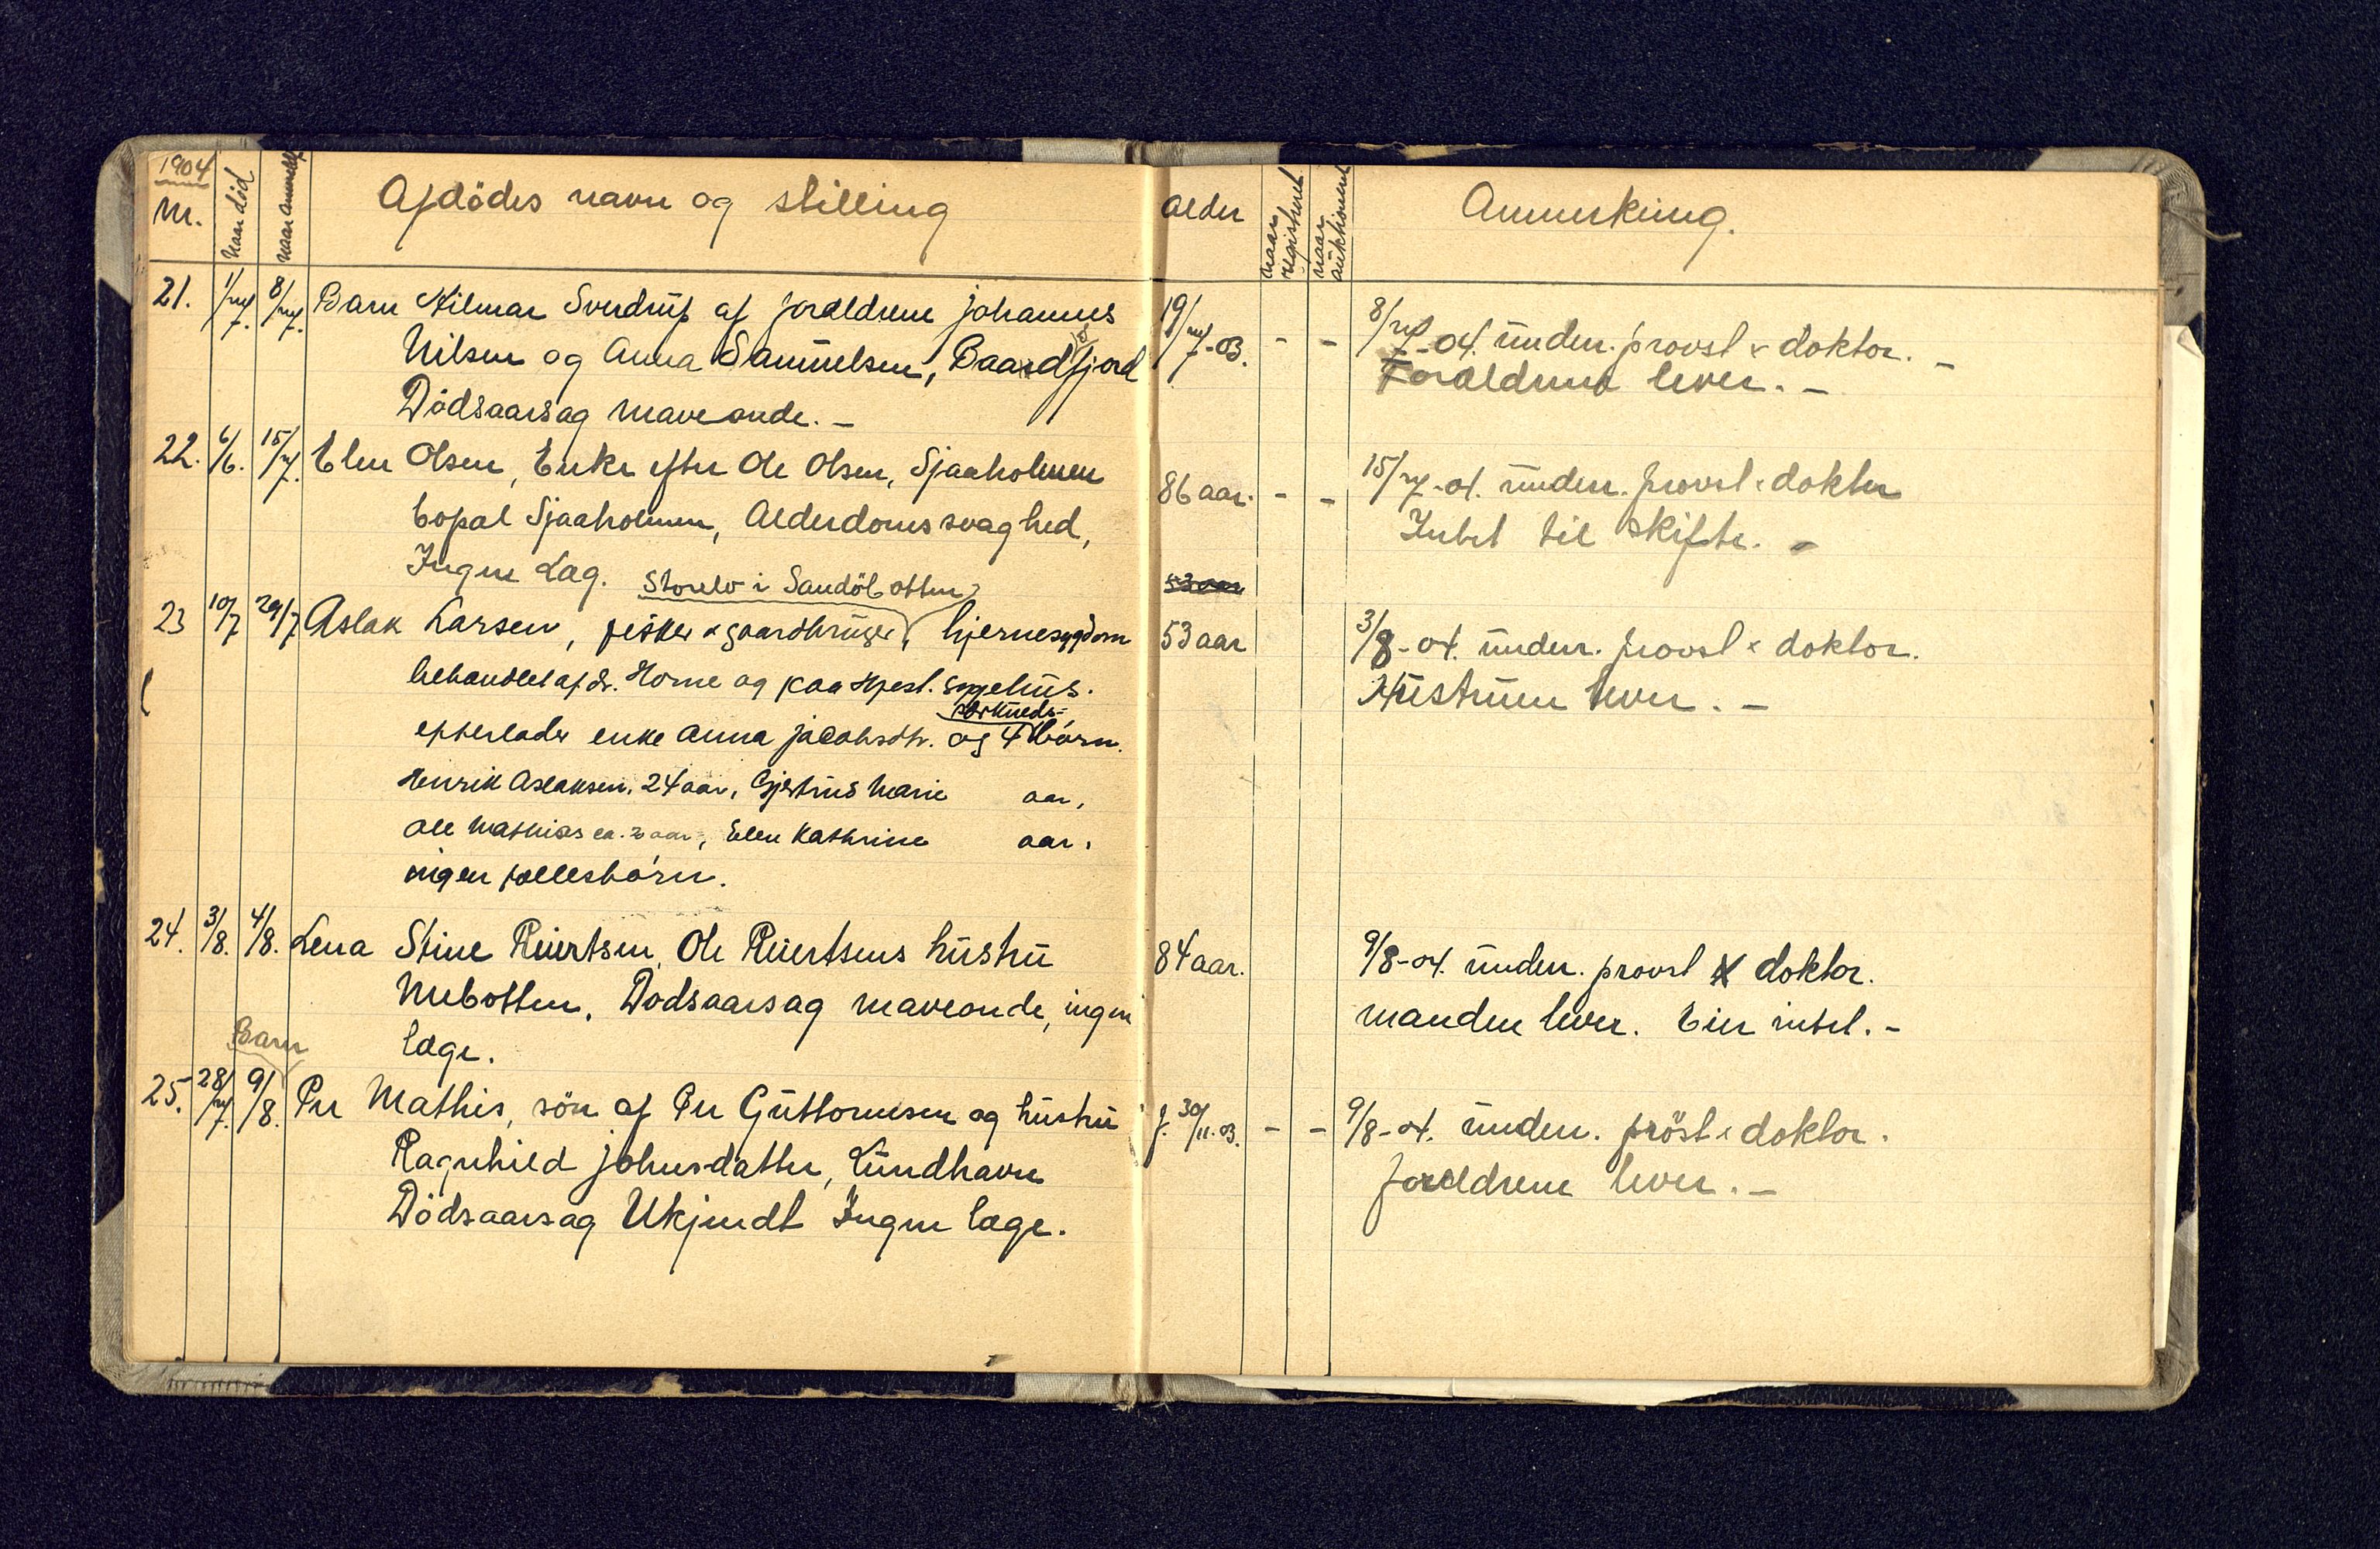 1904
Nr.
Naar död
Naar anmeldt
Afdödes navn og stilling
alder
naar registreret
naar auktioneret
Anmerkning.
21. 1/7. 8/7. Barn Hilmar Sverdrup af foraldrene Johannes 19/7-03. - - 8/7-04. underr. provst & doktor. -
Nilsen og Anna Samuelsen, Baardfjord Foraldrene lever. -
Dödsaarsag maveonde. -
22. 6/6. 15/7. Elen Olsen, Enke efter Ole Olsen, Sjaaholmen 86 aar. - - 15/7-04. underr. provst & dokter
bopal Sjaaholmen, Alderdomssvaghed, Intet til skifte. -
Ingen Læg. Storelv i Sandöbotten 53 aar
23 10/7 29/7 Aslak Larsen, fisker & gaardbruger, hjernesygdom 53 aar 3/8-04. underr. provst & doktor.
behandlet af dr. Horne og paa Hfest. sygehus. Hustruen lever. -
særkueds-
efterlader enke Anna Jacobsdtr. og 4 börn.
Henrik Aslaksen, 24 aar, Gjertrud Marie aar,
Ole Mathias ca. 20 aar, Elen Kathrine aar.
ingen fællesbörn.
24. 3/8. 4/8. Lena Stine Reiertsen, Ole Reiertsens hustru 84 aar. 9/8-04. underr. provst & doktor.
Mebotten. Dodsaarsag maveonde, ingen manden lever. Eier intet. -
læge.
Barn
25. 28/7. 9/8. Per Mathis, sön af Per Guttormsen og hustru f. 30/11-03. - - 9/8-04. underr. pröst & doktor.
Ragnhild Johnsdatter, Lundhavn foraldrene lever. -
Dödsaarsag Ukjendt Ingen læge.